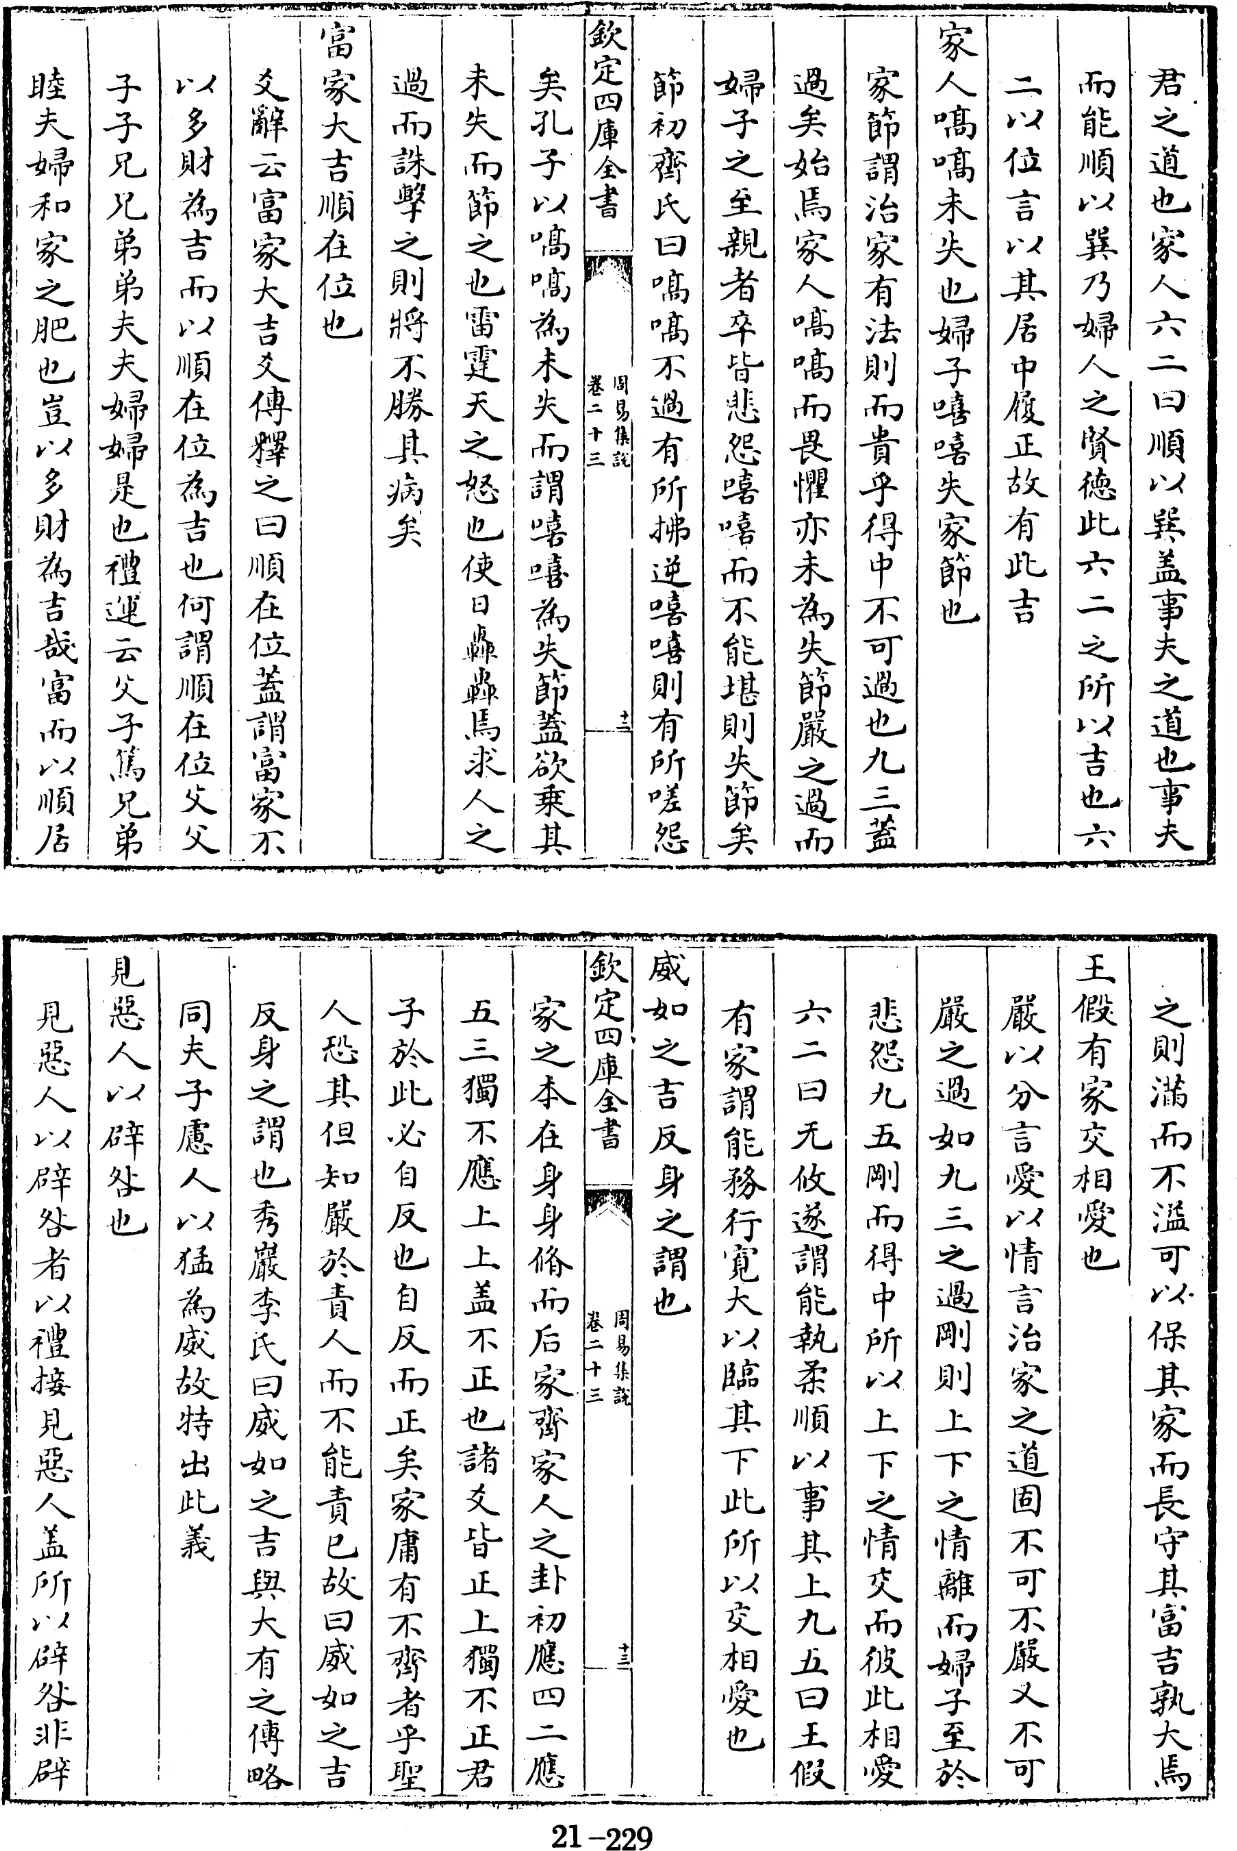 君之道也家人六二曰順以巽盖事夫之道也事夫
而能順以巽乃婦人之賢德此六二之所以吉也六
二以位言以其居中履正故有此吉
家人嗃嗃未失也婦子嘻嘻失家節也
家節謂治家有法則而貴乎得中不可過也九三蓋
過矣始焉家人嗃嗃而畏懼亦未為失節嚴之過而
婦子之至親者卒皆悲怨嘻嘻而不能堪則失節矣
節初齊氏曰嗃嗃不過有所拂逆嘻嘻則有所嗟怨
欽定四庫全書
周易集說
卷二十三
十二
矣孔子以嗃嗃為未失而謂嘻嘻為失節蓋欲乗其
未失而節之也雷霆天之怒也使日轟轟焉求人之
過而誅擊之則將不勝其病矣
富家大吉順在位也
爻辭云富家大吉爻傳釋之曰順在位蓋謂富家不
以多財為吉而以順在位為吉也何謂順在位父父
子子兄兄弟弟夫夫婦婦是也禮運云父子篤兄弟
睦夫婦和家之肥也豈以多財為吉哉富而以順居
之則滿而不溢可以保其家而長守其富吉孰大焉
王假有家交相愛也
嚴以分言愛以情言治家之道固不可不嚴又不可
嚴之過如九三之過剛則上下之情離而婦子至於
悲怨九五剛而得中所以上下之情交而彼此相愛
六二曰无攸遂謂能執柔順以事其上九五曰王假
有家謂能務行寛大以臨其下此所以交相愛也
威如之吉反身之謂也
欽定四庫全書
周易集說
卷二十三
十三
家之本在身身脩而后家齊家人之卦初應四二應
五三獨不應上上盖不正也諸爻皆正上獨不正君
子於此必自反也自反而正矣家庸有不齊者乎聖
人恐其但知嚴於責人而不能責已故曰威如之吉
反身之謂也秀巖李氏曰威如之吉與大有之傳略
同夫子慮人以猛為威故特出此義
見惡人以辟咎也
見惡人以辟咎者以禮接見惡人盖所以辟咎非辟
21-229